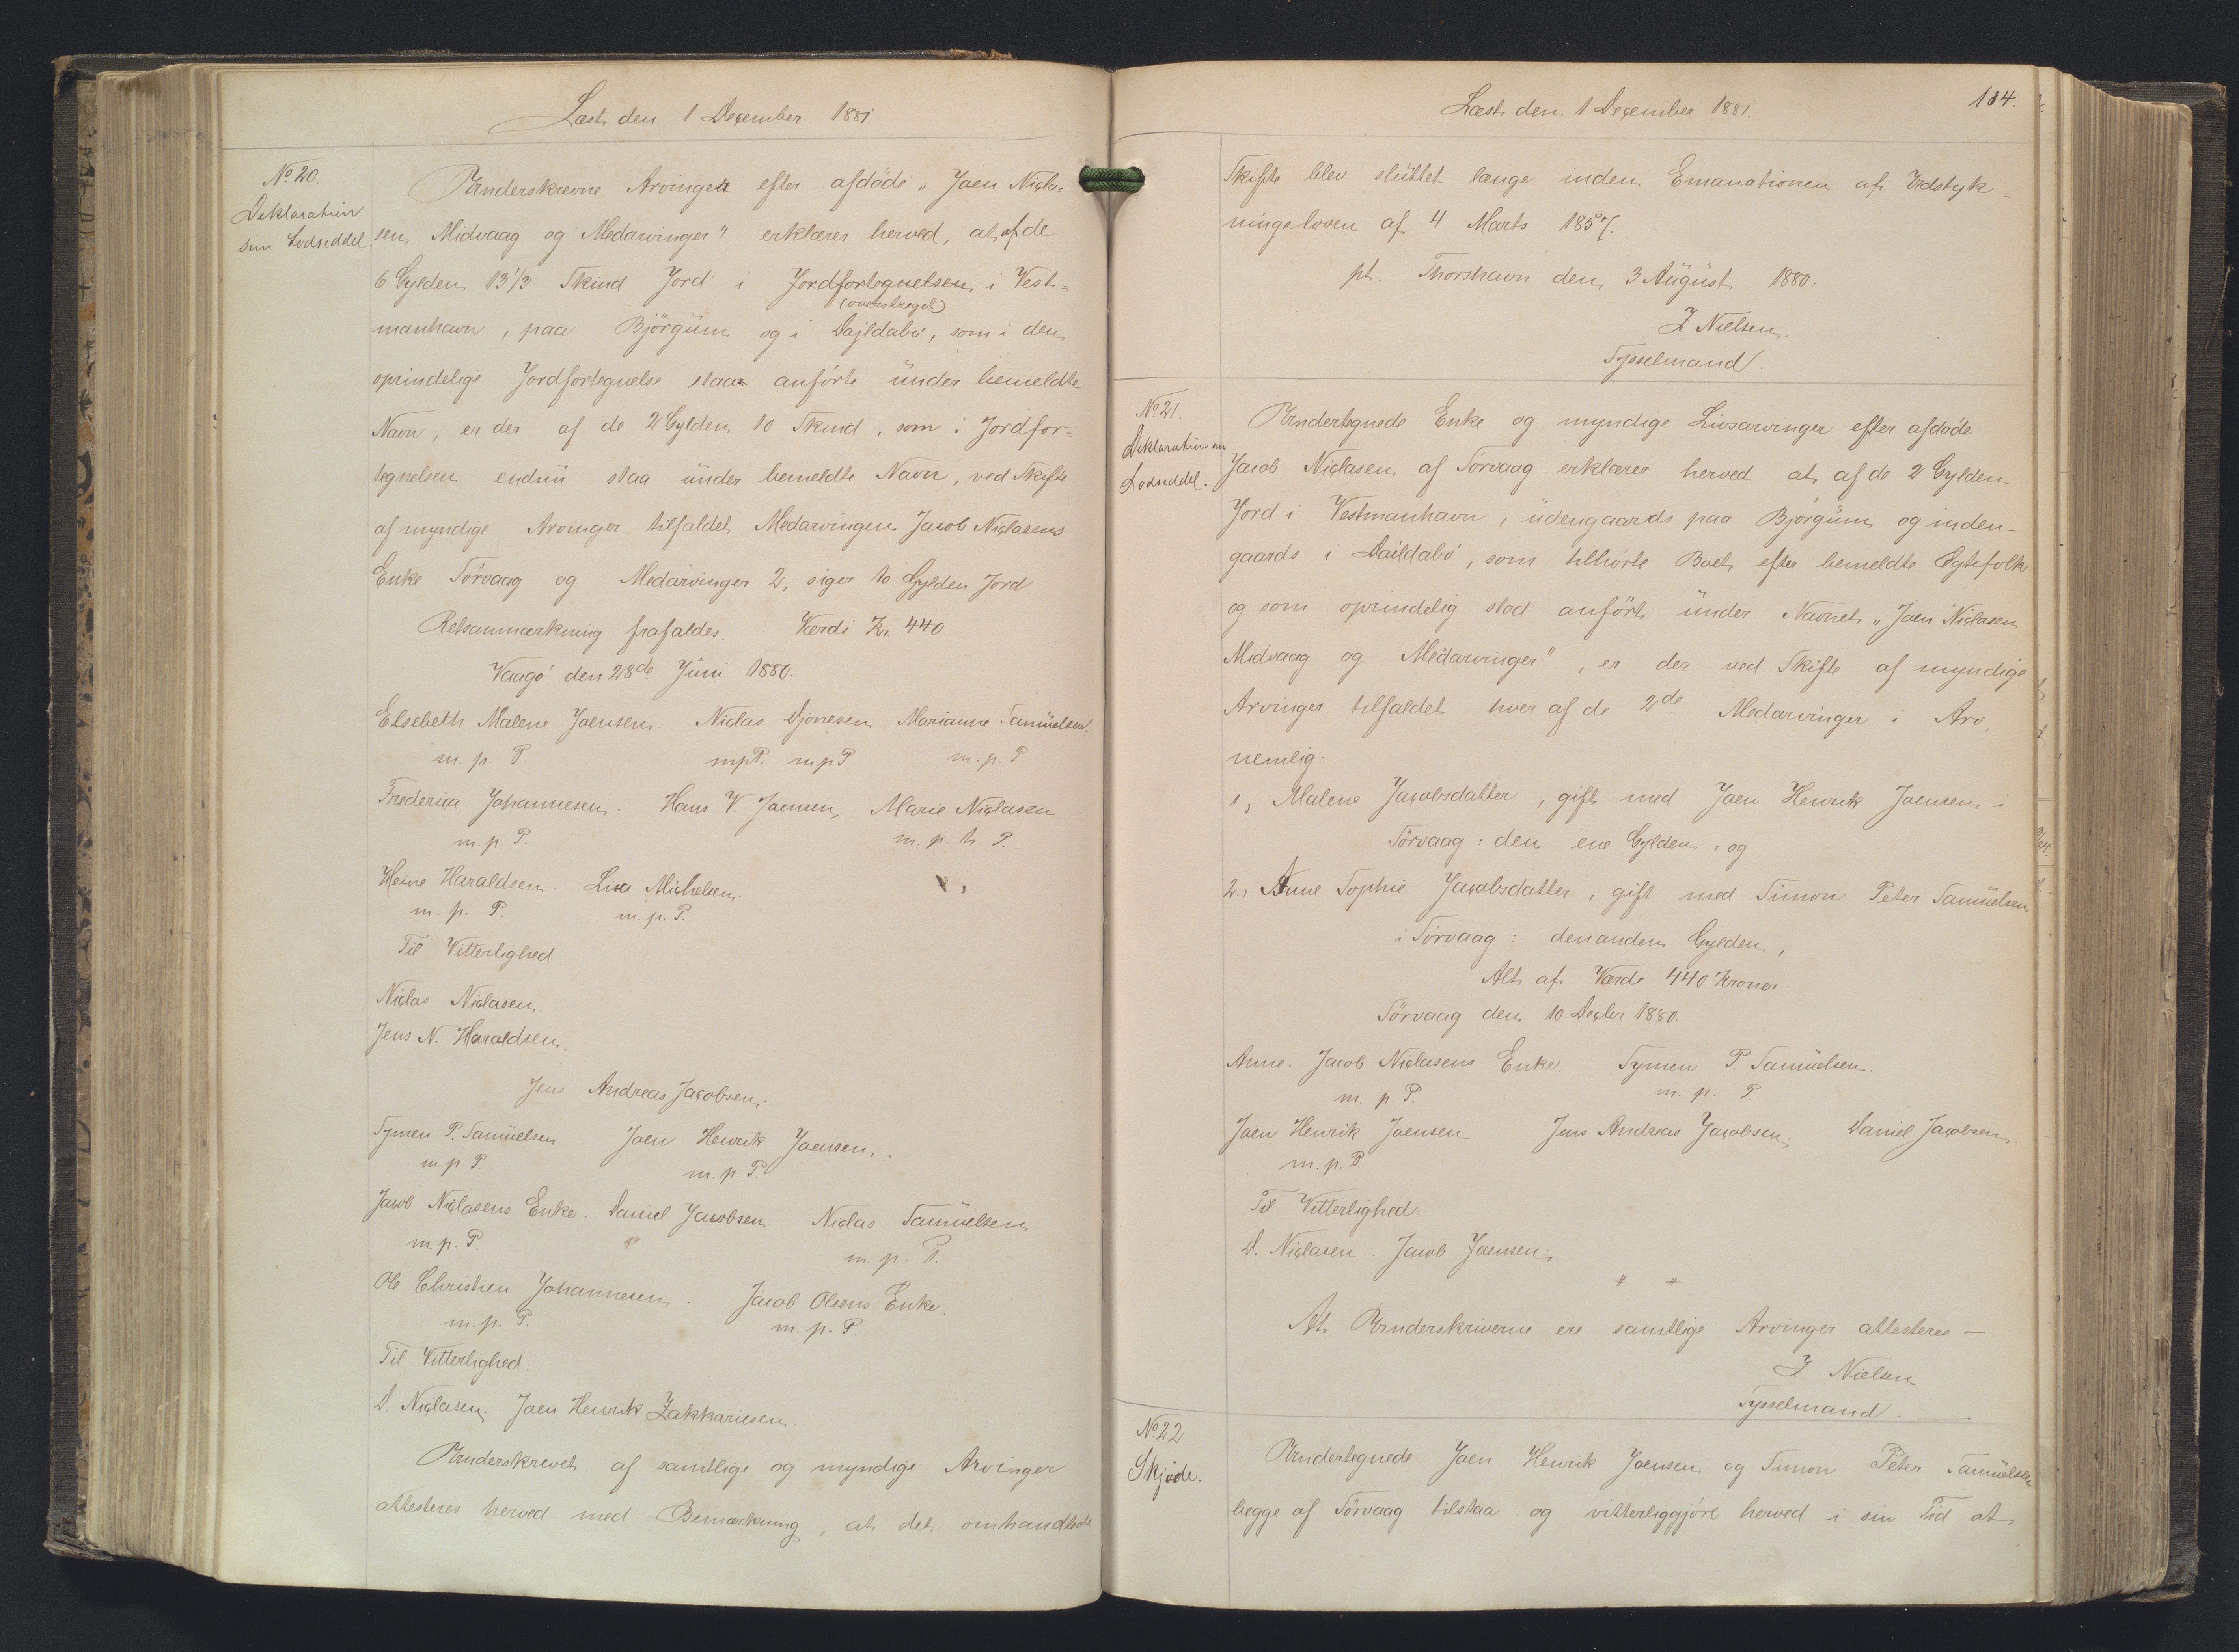 Læst den 1 December 1881
No 20.
Deklaration
som Lodseddel.
Underskrevne Arvinger efter afdöde "Joen Nicla=
sen Midvaag og Medarvinger" erklærer herved, at af de
6 Gylden 13 1/3 Skind Jord i Jordfortegnelsen i Vest=
(overstreget)
manhavn, paa Björgum og i Dajldabö, som i den
oprindelige Jordfortegnelse staar anförte under bemeldte
Navn, er der af de 2 Gylden 10 Skind, som i Jordfor=
tegnelsen endnu staa under bemeldte Navn, ved Skifte
af myndige Arvinger tilfaldet Medarvingen Jacob Niclasens
Enke Sörvaag og Medarvinger 2, siger to Gylden Jord.
Retsanmærkning frafaldes. Værdi Kr. 440.
Vaagö den 28de Juni 1880.
Elsebeth Malene Joensen. Niclas Djonesen Marianne Samuelsen
m. p. P. mpP. mpP. m. p. P.
Frederica Johannesen. Hans V. Joensen, Marie Niclasen
m. p. P. m. p. h. P.
Heine Haraldsen. Lisa Michelsen.
m. p. P. m. p. P.
Til Vitterlighed
Niclas Niclasen.
Jens N. Haraldsen.
Jens Andreas Jacobsen.
Symen P. Samuelsen Joen Henrik Joensen.
m. p P m. p. P.
Jacob Niclasens Enke. Daniel Jacobsen Niclas Samuelsen
m. p. P. " m. p. P.
Ole Christian Johannesen. Jacob Olsens Enke.
m. p. P. m p. P.
Til Vitterlighed.
D. Niclasen. Joen Henrik Zakkariesen.
Underskrevet af samtlige og myndige Arvinger
attesteres herved med Bemærkning, at det omhandlede
Læst den 1 December 1881.
184.
Skifte blev sluttet længe inden Emanationen af Udstyk=
ningsloven af 4 Marts 1857.
pt. Thorshavn den 3 August 1880.
Z Nielsen.
Sysselmand.
No 21.
Deklaration som
Lodseddel.
Undertegnede Enke og myndige Livsarvinger efter afdöde
Jacob Niclasen af Sörvaag erklærer herved at af de 2 Gylden
Jord i Vestmanhavn, udengaards paa Björgum og inden-
gaards i Daildabö, som tilhörte Boet efter bemeldte Ægtefolk
og som oprindelig stod anfört under Navnet "Joen Niclasen
Midvaag og Medarvinger", er der ved Skifte af myndige
Arvinger tilfaldet hver af de 2de Medarvinger i Arv,
nemlig:
1., Malene Jacobsdatter, gift med Joen Henrik Joensen i
Sörvaag: den ene Gylden, og
2., Anne Sophie Jacobsdatter, gift med Simon Peter Samuelsen
i Sörvaag: den anden Gylden.,
Alt af Værdi 440 Kroner.
Sörvaag den 10 Decbr 1880.
Anne. Jacob Niclasens Enke. Symen P. Samuelsen.
m. p. P. m. p. P.
Joen Henrik Joensen Jens Andreas Jacobsen. Daniel Jacobsen.
m. p. P
Til Vitterlighed.
D. Niclasen. Jacob Joensen.
" "
At Underskriverne ere samtlige Arvinger attesteres —
Z Nielsen
Sysselmand.
No 22.
Skjöde.
Undertegnede Joen Henrik Joensen og Simon Peter Samuelsen
begge af Sörvaag tilstaa og vitterliggjöre herved i sin Tid at